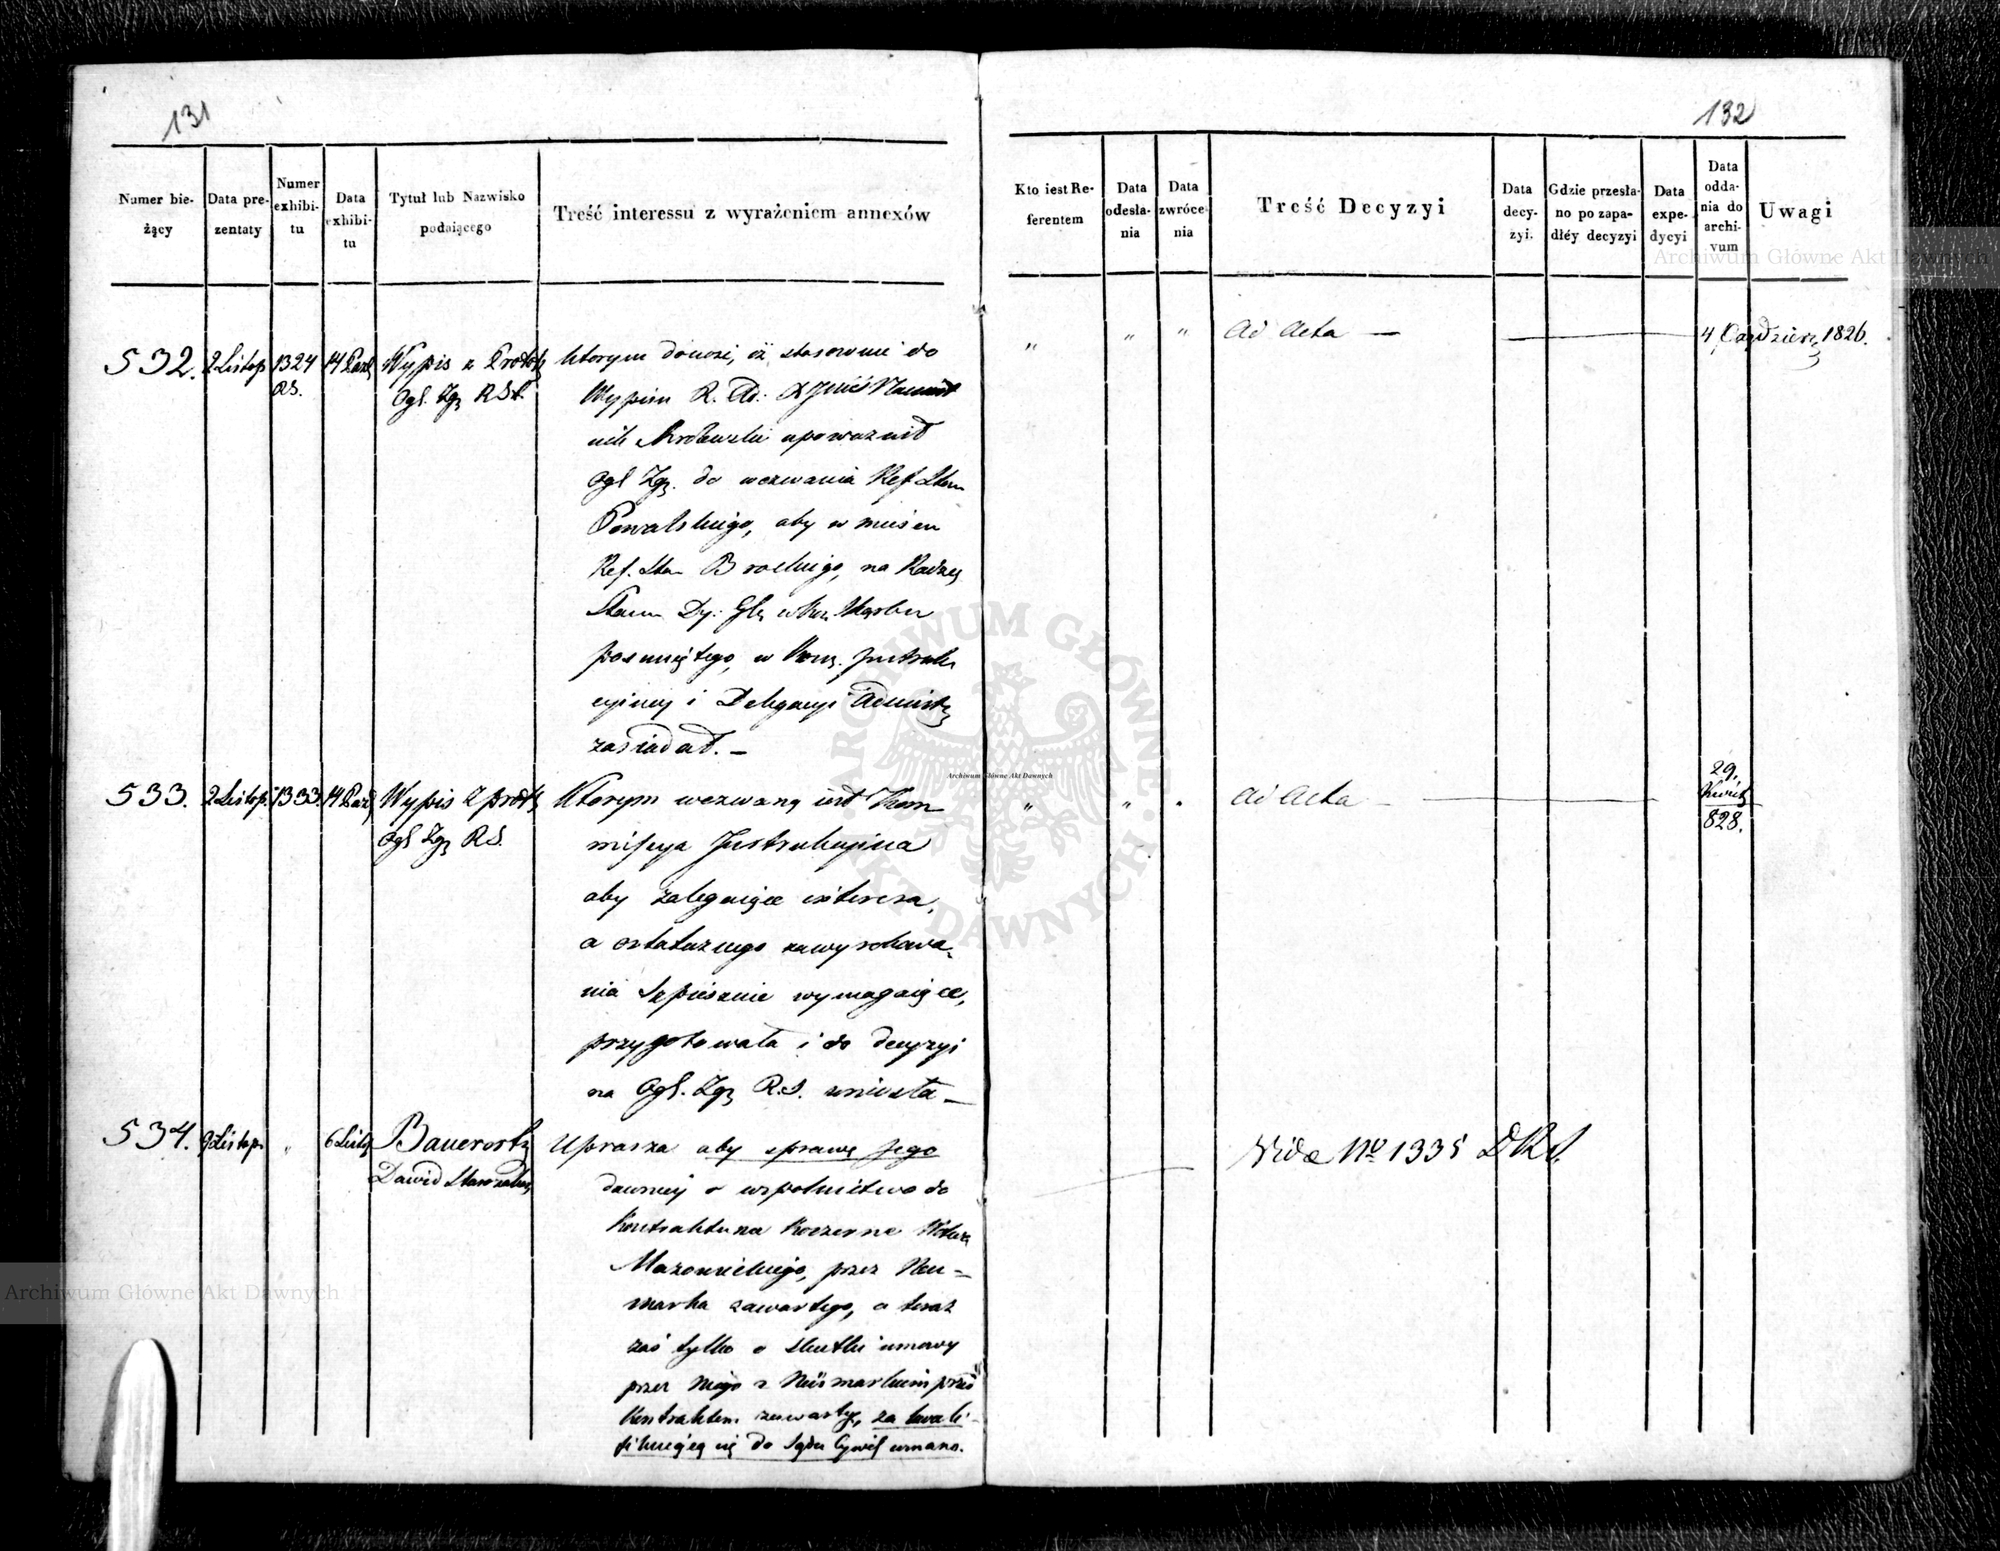 131
Numer bie-
żący
Data pre-
zentaty
Numer
exhibi-
tu
Data
exhibi-
tu
Tytuł lub Nazwisko
podaiącego
Treść interessu z wyrażeniem annexów
532.
2 Listop
1324
RS.
14 Paźd
Wypis z Protok
Ogł. Zgr RSt.
którym donosi, iż stosownie do
Wypisu R. Ad. Xżęcie Namiest
nik Królewski upoważnił
Ogł Zgr. do wezwania Ref. Stanu
aby w mieisce
Ref. Stan Brockiego, na Radzcę
Stanu Dyr. Gło w Kom. Skarbu
posuniętego, w Kom. Instruk
cyiney i Delegacyi Administr
zasiadał. —
533.
2 Listop.
1333.
14 Paźd
Wypis z prot
Ogł Zgr RS.
Którym wezwaną iest Kom
missya Instrukcyina
aby zalegaiące interesa,
a ostatecznego zawyrokowa-
nia śpiesznie wymagaiące,
przygotowała i do decyzyi
na Ogł. Zgr R.S. wniosła —
534.
9 Listop.
"
6 Listop
Bauerertz
Dawid Starozakon
Uprasza aby sprawę Jego
dawniey o wspólnictwo do
Kontraktu na Koszerne Wdztwa
Mazowieckiego, przez Neu-
marka zawartego, a teraz
zaś tylko o skutki umowy
przez Niego z Neümarkiem przed
Kontraktem zawartey, za kwali-
fikuiącą się do Sądu Cywil uznano.
132
Kto iest Re-
ferentem
Data
odesła-
nia
Data
zwróce-
nia
Treść Decyzyi
Data
decy-
zyi.
Gdzie przesła-
no po zapa-
dłéy decyzyi
Data
expe-
dycyi
Data
odda-
nia do
archi-
vum
Uwagi
" " " Ad Acta — 4 Paździer. 1826.
" " " Ad Acta — 29.
Kwiet
828.
Vide No 1335 DRS.
Archiwum Główne Akt Dawnych
Archiwum Główne Akt Dawnych
Archiwum Główne Akt Dawnych
ARCHIWUM GŁÓWNE AKT DAWNYCH